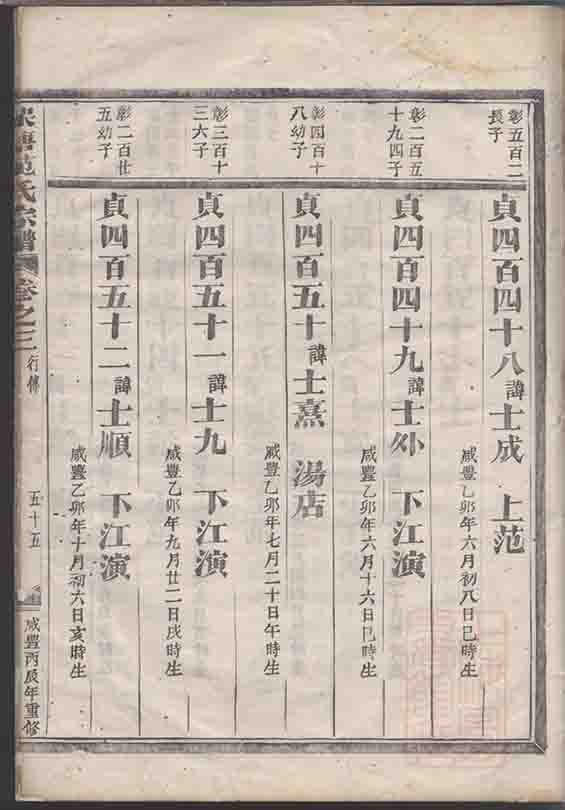 彰五百二
長子
貞四百四十八諱士成 上范
咸豐乙卯年六月初八日巳時生
彰二百五
十九四子
貞四百四十九諱士外 下江演
咸豐乙卯年六月十六日巳時生
彰四百十
八幼子
貞四百五十諱士熹 湯店
咸豐乙卯年七月二十日午時生
彰三百十
三六子
貞四百五十一諱士九 下江演
咸豐乙卯年九月廿二日戌時生
彰二百廿
五幼子
貞四百五十二諱士順 下江演
咸豐乙卯年十月初六日亥時生
范氏宗譜 卷之三 行傳 五十五 咸豐丙辰年重修